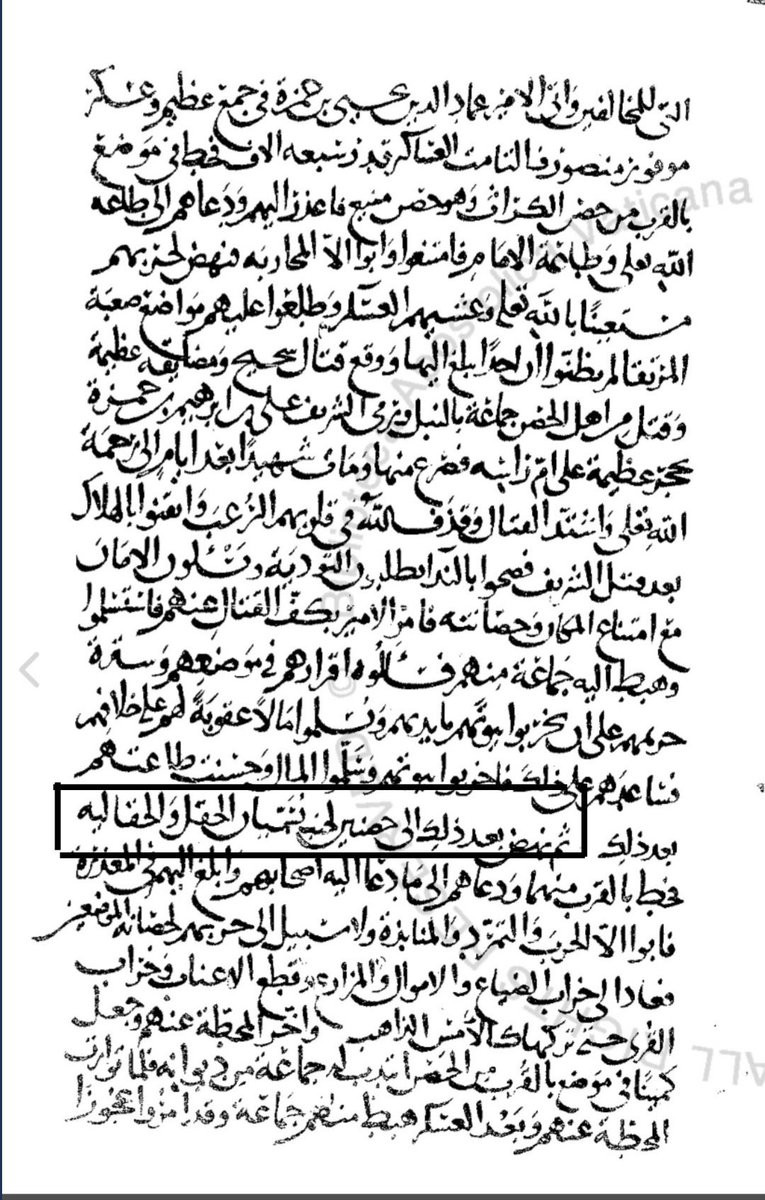 التي للمخالفين واتى الامير عماد الدين يحيى بن حمزة في جمع عظيم وعسكر
موفور منصور فالتامت العساكر قدر سبعه الاف فحط في موضع
بالقرب من حصن الكراث وهو حصن منيع فاعذر اليهم ودعاهم الى طاعه
الله تعلى وطاعة الامام فامتنعوا وابوا الا المحاربه فنهض لحربهم
مستعينًا بالله تعلى وغشيهم العسكر وطلعوا عليهم مواضع صعبة
المرتقا لم يظنوا ان احدًا بلغ اليها ووقع قتال صحيح ومضايقه عظيمة
وقتل من اهل الحصن جماعة بالنبل ورمى الشريف علي بن ابرهيم بن حمزة
بحجر عظيمة على ام راسه فصرع منها ومات شهيدًا بعد ايام الى رحمة
الله تعلى واشتد القتال وقذف الله في قلوبهم الرعب وايقنوا بالهلاك
بعد قتل الشريف فصحوا بالندا يطلبون التودية ويسئلون الامان
مع امتناع المكان وحصانته فامر الامير بكف القتال عنهم فاستسلموا
وهبط اليه جماعة منهم فسالوه اقرارهم في موضعهم وسترة
حريمهم على ان يخربوا بيوتهم بايديهم ويسلموا مالا عقوبةً لهم على خلافهم
فساعدهم على ذلك فاخربوا بيوتهم وسلموا المال وحسنت طاعتهم
بعد ذلك ثم نهض بعد ذلك الى حصنين لجنب تسميان الحقل والحقاليه
فحط بالقرب منهما ودعاهم الى ما دعا اليه اصحابهم وابلغ اليهم في المعذرة
فابوا الا الحرب والتمرد والمنابذة ولا سبيل الى حربهم لحصانة الموضعين
فعاد الى خراب الضياع والاموال والمزارع وقطع الاعناب وخراب
القرى حتى تركها كالأمس الذاهب واخر المحطة عنهم وجعل
كمينًا في موضع بالقرب من الحصن انتدب له جماعة من ديوانه فلما توارت
المحطة عنهم وبعد العسكر هبط منهم جماعة وقد امروا عجوزا
© Biblioteca Apostolica Vaticana